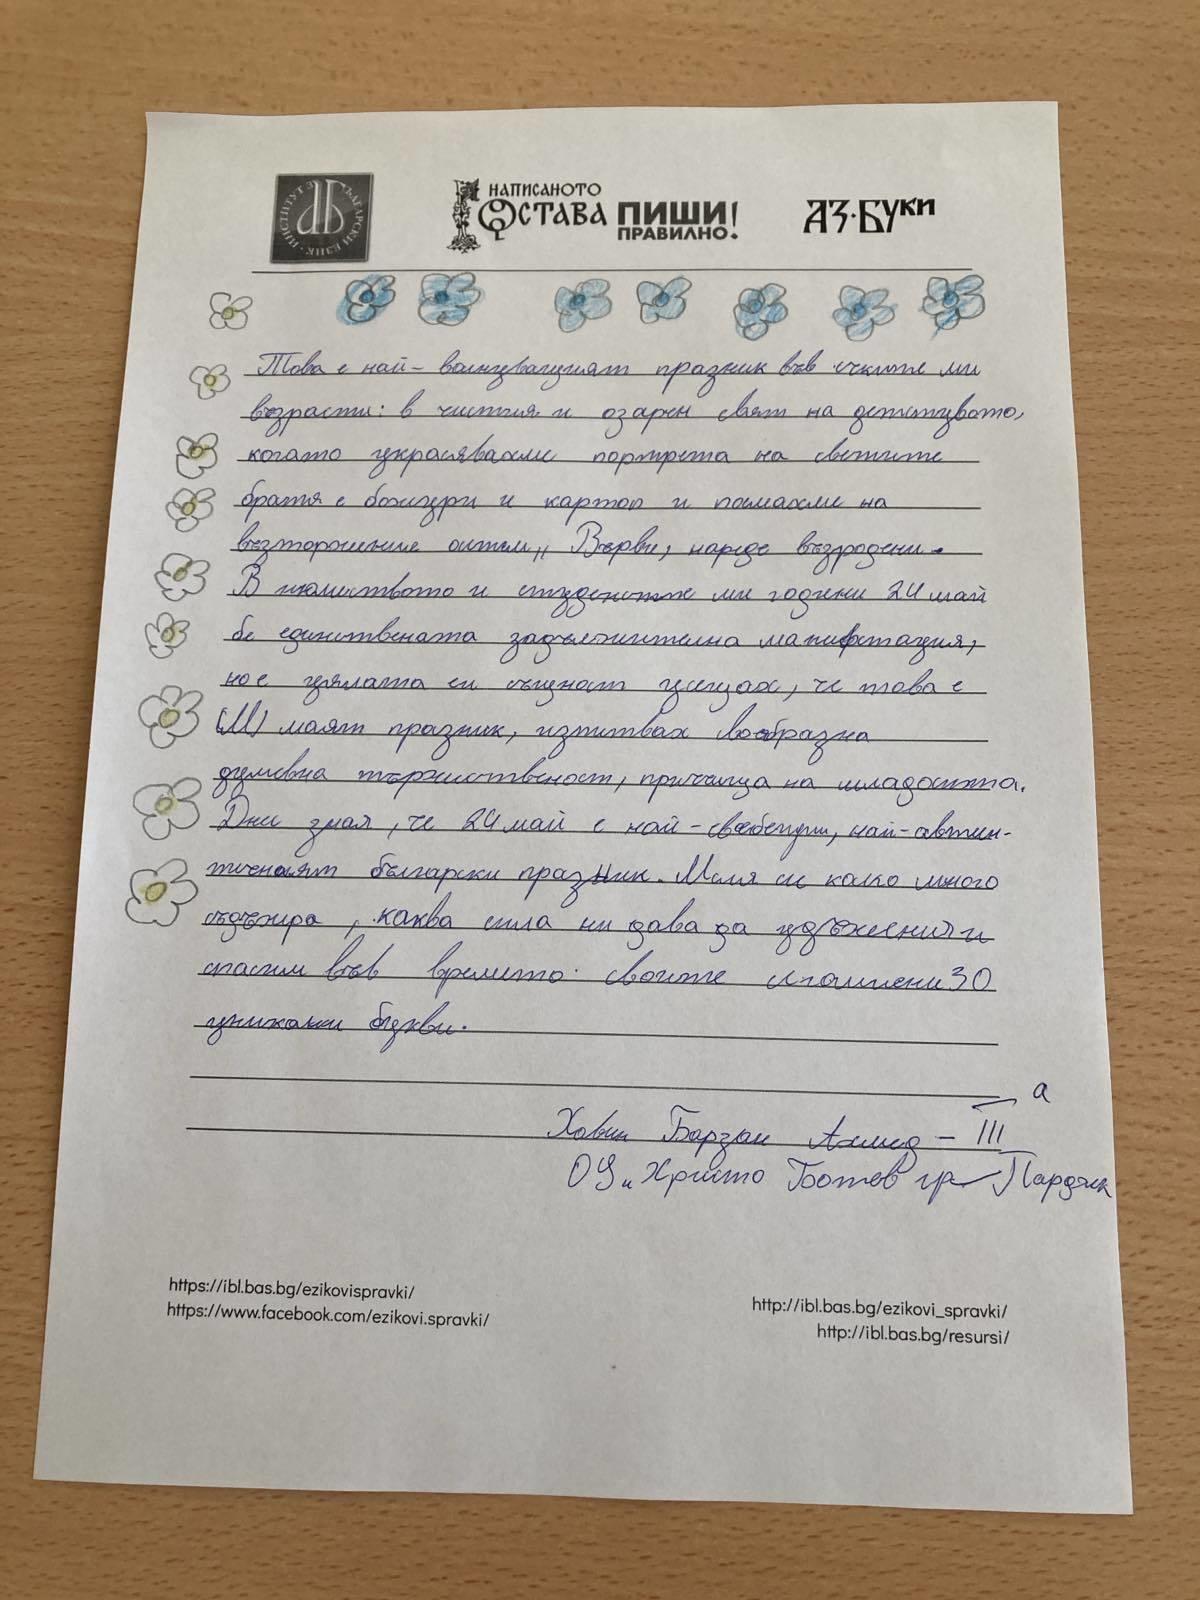 ИНСТИТУТ ЗА БЪЛГАРСКИ ЕЗИК
НАПИСАНОТО
ОСТАВА ПИШИ
ПРАВИЛНО!
АЗ·БУКИ
Това е най-вълнуващият празник във всички ми
възрасти: в чистия и озарен свят на детството,
когато украсявахме портрета на светите
братя с божури и картон и помахме на
възторжение онтем „ Върви, народе възродени.
В юношеството и студенските ми години 24 май
бе единствената задължителна манифетация,
но с цялата си същност усещах, че това е
(М) моят празник, изпитвах своебразна
душевна тържественост, причаща на младостта.
Днес зная, че 24 май е най-свободни, най-автен-
тичният български празник. Мисля си колко много
съдържа, каква сила ни дава да удължения и
спасим във времето своите спомлени 30
уникални букви.
Ховин Барзан Ахмед - III а
ОУ „Христо Ботев гр Пардзик
https://ibl.bas.bg/ezikovispravki/
https://www.facebook.com/ezikovi.spravki/
http://ibl.bas.bg/ezikovi_spravki/
http://ibl.bas.bg/resursi/